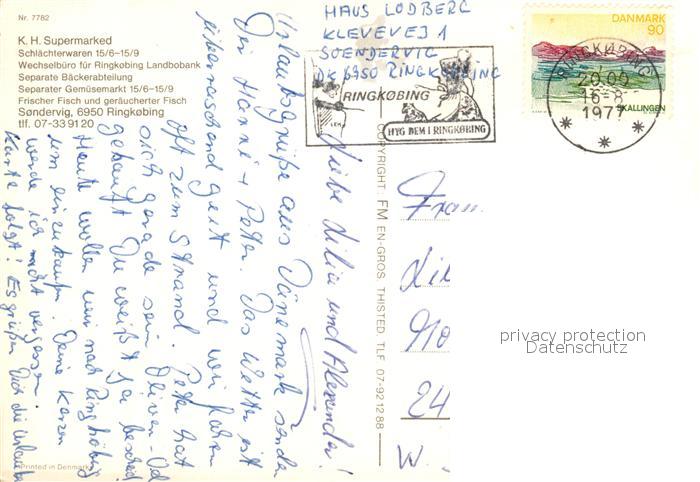 Nr. 7782
K. H. Supermarked
Schlächterwaren 15/6-15/9
Wechselbüro für Ringkobing Landbobank
Separate Bäckerabteilung
Separater Gemüsemarkt 15/6-15/9
Frischer Fisch und geräucherter Fisch
Søndervig, 6950 Ringkøbing
tlf. 07-33 91 20
HAUS LODBERG
KLEVEVEJ 1
SOENDERVIG
DK 6950 RINGKØBING
RINGKØBING
HYG DEM I RINGKØBING
DANMARK
90
SKALLINGEN
RINGKØBING
20.00
16-8
1977
Liebe Lilia und Alexander!
Urlaubsgrüße aus Dänemark senden
Dir Hanni + Peter. Das Wetter ist
überraschend gut und wir fahren
oft zum Strand. Peter hat
sich gerade sein Oliven-Oel
gekauft. Du weißt ja bescheid!
Heute wollen wir nach Ringköbing
um einzukaufen. Deine Kerzen
werde ich nicht vergessen.
Karte folgt! Es grüßen Dich die Urlauber
COPYRIGHT: FM EN-GROS. THISTED. TLF. 07-92 12 88
Frau
Lil
No
24
W.
Printed in Denmark
privacy protection
Datenschutz